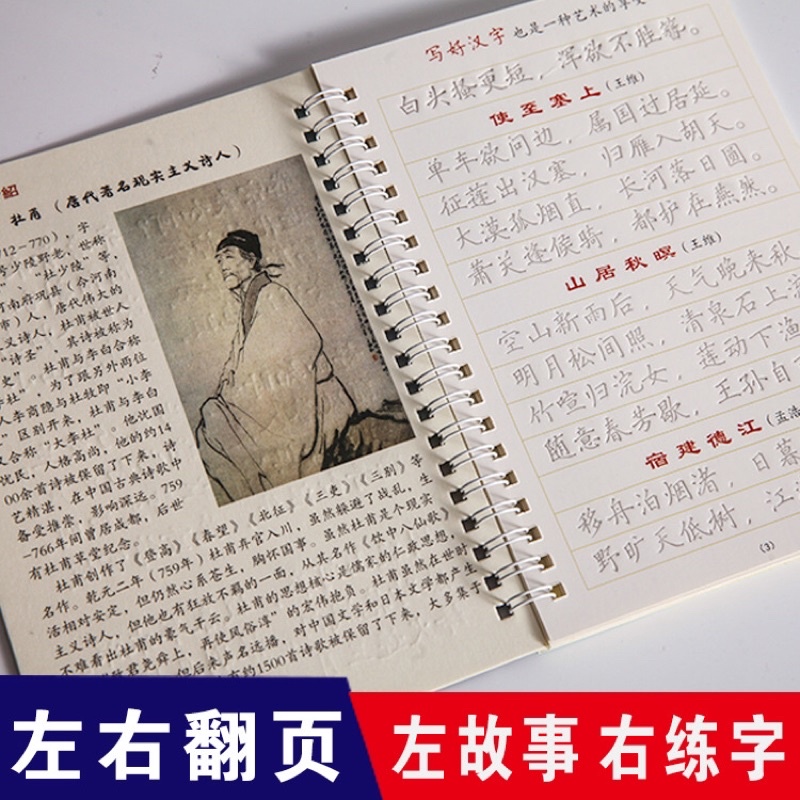 绍
杜甫 (唐代著名现实主义诗人)
712-770),字
号少陵野老,世称
"、"杜少陵"等,
河南府巩县(今河南
市)人,唐代伟大的
义诗人,杜甫被世人
"诗圣",其诗被称为
史"。杜甫与李白合称
李杜",为了跟另外两位
人李商隐与杜牧即"小李
"区别开来,杜甫与李白
又合称"大李杜"。他忧国
忧民,人格高尚,他的约14
00余首诗被保留了下来,诗
艺精湛,在中国古典诗歌中
备受推崇,影响深远。759
-766年间曾居成都,后世
有杜甫草堂纪念。
杜甫创作了《登高》《春望》《北征》《三吏》《三别》等
名作。乾元二年(759年)杜甫弃官入川,虽然躲避了战乱,生
活相对安定,但仍然心系苍生,胸怀国事。虽然杜甫是个现实
主义诗人,但他也有狂放不羁的一面,从其名作《饮中八仙歌》
不难看出杜甫的豪气干云。杜甫的思想核心是儒家的仁政思想,
"致君尧舜上,再使风俗淳"的宏伟抱负。杜甫虽然在世时
但后来声名远播,对中国文学和日本文学都产生
有约1500首诗歌被保留了下来,大多集于
写好汉字 也是一种艺术的享受
白头搔更短,浑欲不胜簪。
使至塞上(王维)
单车欲问边,属国过居延。
征蓬出汉塞,归雁入胡天。
大漠孤烟直,长河落日圆。
萧关逢侯骑,都护在燕然。
山居秋暝(王维)
空山新雨后,天气晚来秋
明月松间照,清泉石上流
竹喧归浣女,莲动下渔
随意春芳歇,王孙自
宿建德江(孟浩
移舟泊烟渚,日暮
野旷天低树,江
(3)
左右翻页
左故事 右练字